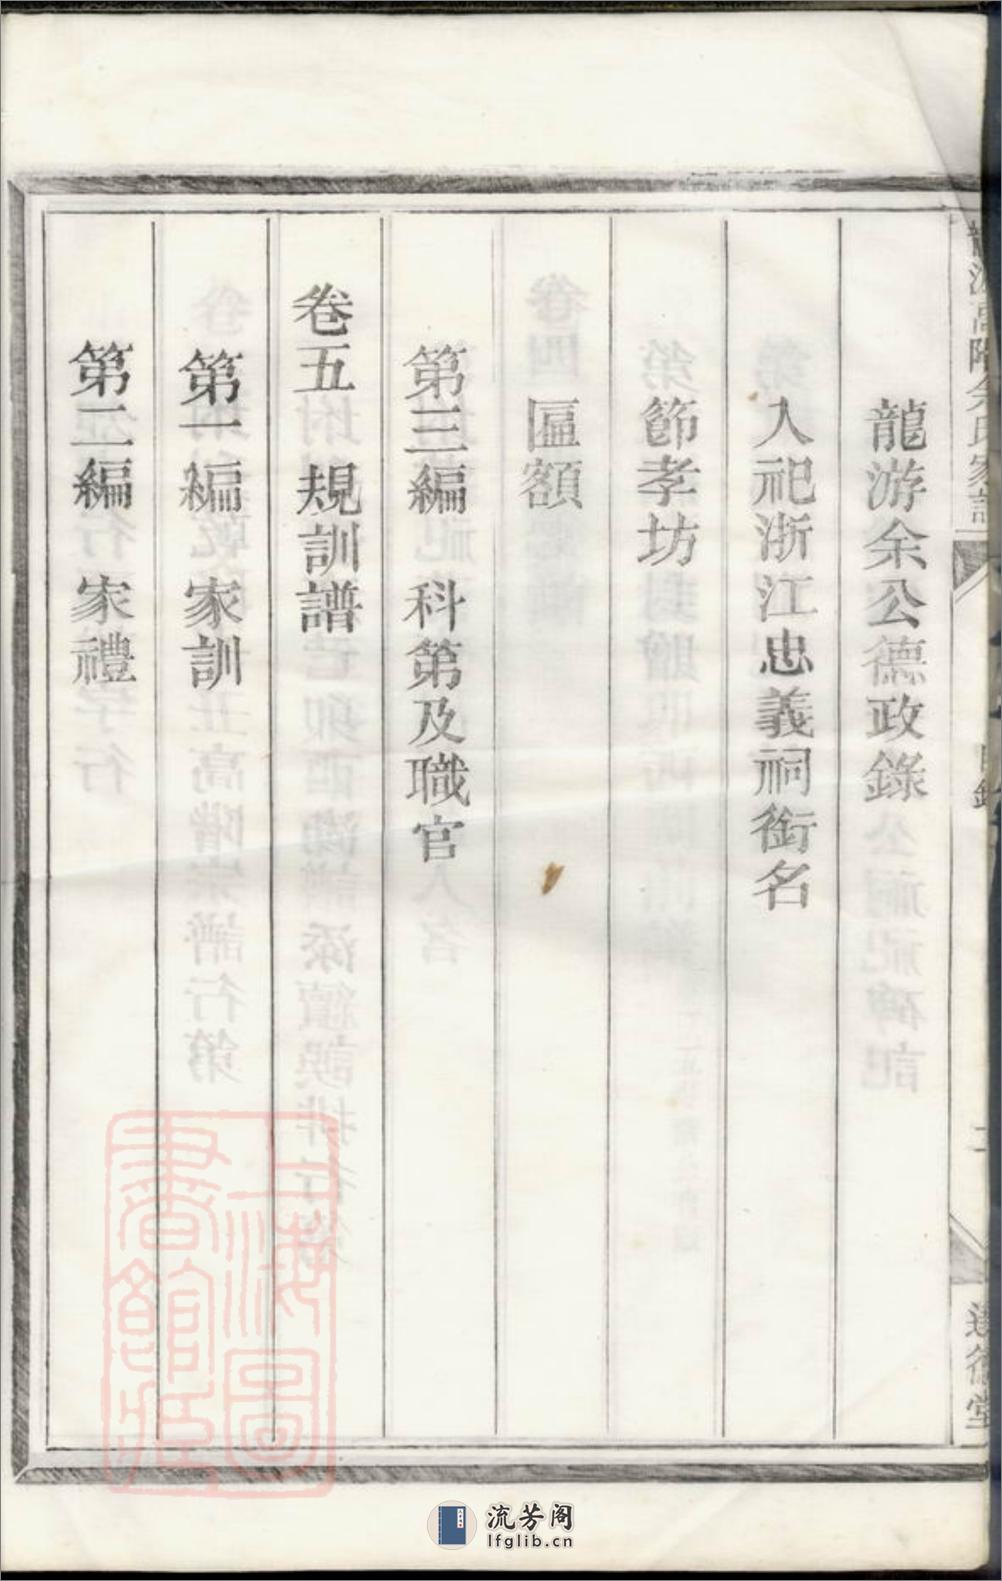 龍游余公德政錄
入祀浙江忠義祠銜名
節孝坊
匾額
第三編 科第及職官
卷五 規訓譜
第一編 家訓
第二編 家禮
達德堂
上海圖書館藏
流芳阁
lfglib.cn